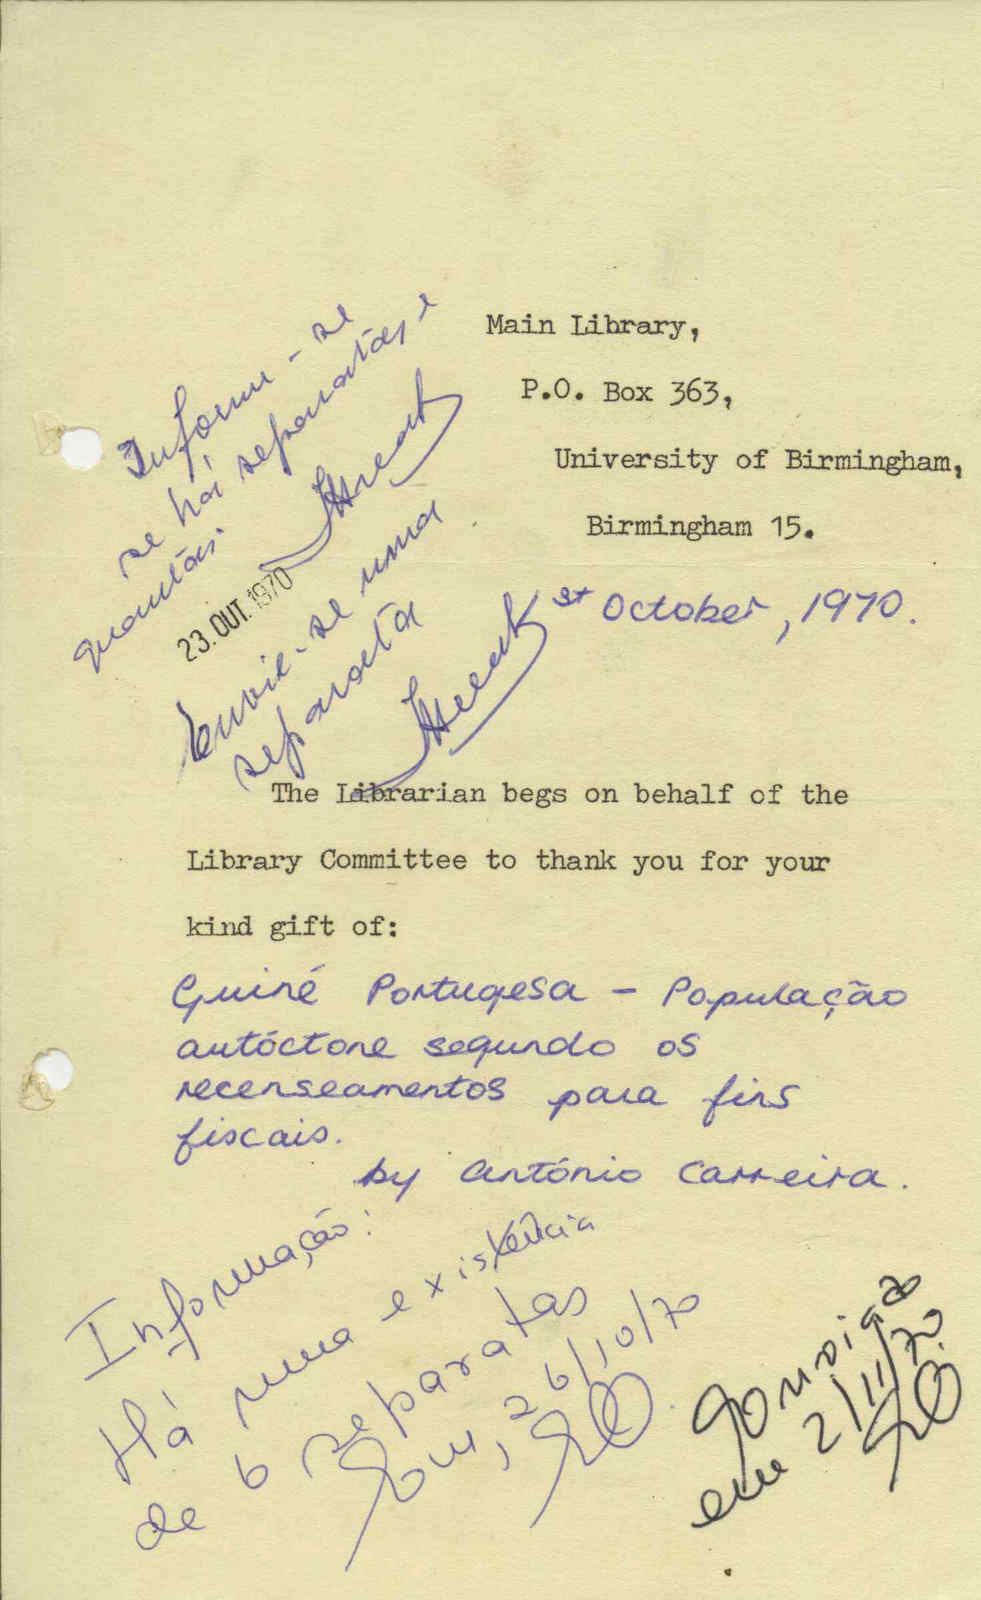 Main Library,
P.O. Box 363,
University of Birmingham,
Birmingham 15.
st October, 1970.
Informe-se
se há separatas e
quantas
23. OUT. 1970
Envie-se uma
separata
The Librarian begs on behalf of the
Library Committee to thank you for your
kind gift of:
Guiné Portugesa - População
autóctone segundo os
recenseamentos para fins
fiscais.
by António Carreira.
Informação:
Há uma existência
de 6 separatas
Em, 26/10/70
em 2/11/70